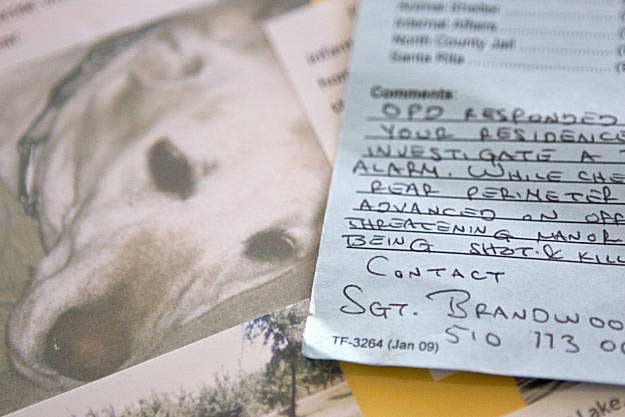 Animal Shelter
Internal Affairs
North County Jail
Santa Rita
Comments:
OPD RESPONDED
YOUR RESIDENCE
INVESTIGATE A
ALARM. WHILE CHE
REAR PERIMETER
ADVANCED ON OFF
THREATENING MANOR
BEING SHOT & KILL
CONTACT
SGT. BRANDWOO
510 773
TF-3264 (Jan 09)
Lake